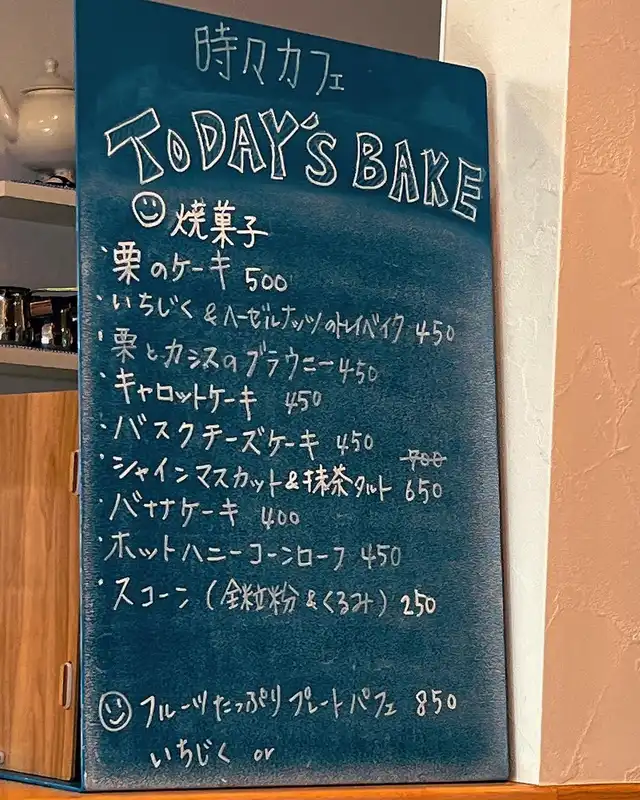 時々カフェ
TODAY'S BAKE
焼菓子
・栗のケーキ 500
・いちじく & ヘーゼルナッツのトレイベイク 450
・栗とカシスのブラウニー 450
・キャロットケーキ 450
・バスクチーズケーキ 450
700
・シャインマスカット&抹茶タルト 650
・バナナケーキ 400
・ホットハニーコーンローフ 450
・スコーン (全粒粉&くるみ) 250
フルーツたっぷりプレートパフェ 850
いちじく or